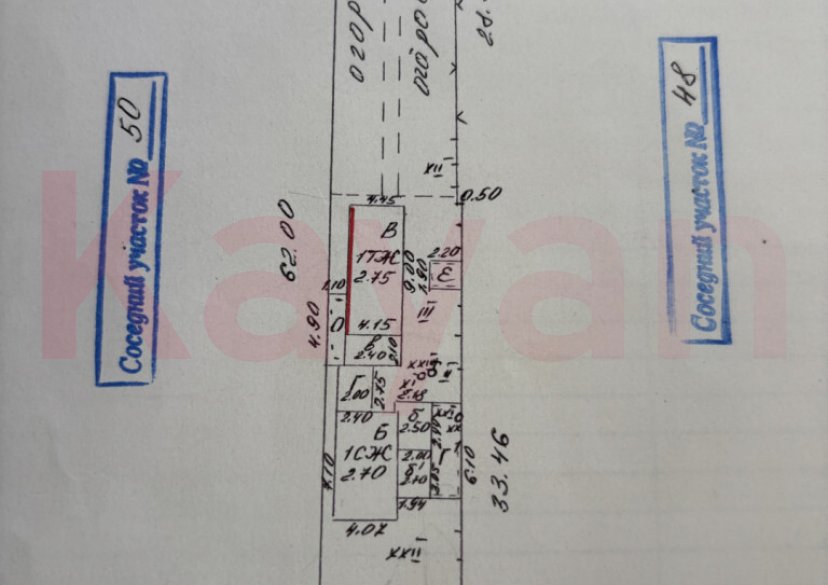 огор
огоро
28.
Соседний участок № 50
Соседний участок № 48
Kayan
XII
0.50
4.45
62.00
В
1ТЖ
2.75
9.00
1.90
2.20
Е
1.10
4.90
III
4.15
2.40
XI
II
Г
2.00
2.75
2.40
Б
1СЖ
2.70
7.10
б
2.50
2.00
б1
2.10
Г
6.10
33.46
1.94
4.07
XXII